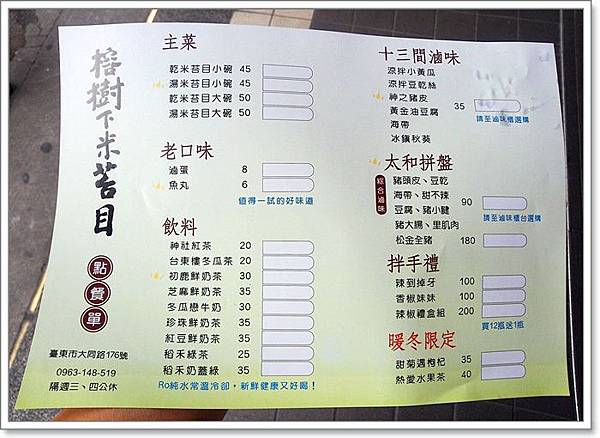 榕樹下米苔目
點餐單
臺東市大同路176號
0963-148-519
隔週三、四公休
主菜
乾米苔目小碗 45
湯米苔目小碗 45
乾米苔目大碗 50
湯米苔目大碗 50
老口味
滷蛋 8
魚丸 6
值得一試的好味道
飲料
神社紅茶 20
台東樓冬瓜茶 20
初鹿鮮奶茶 30
芝麻鮮奶茶 35
冬瓜戀牛奶 30
珍珠鮮奶茶 35
紅豆鮮奶茶 35
稻禾綠茶 25
稻禾奶蓋綠 35
Ro純水常溫冷卻,新鮮健康又好喝!
十三間滷味
涼拌小黃瓜
涼拌豆乾絲
神之豬皮
黃金油豆腐
海帶
冰鎮秋葵
35
請至滷味櫃選購
太和拼盤
綜合滷味
豬頭皮、豆乾
海帶、甜不辣
豆腐、豬小腱
豬大腸、里肌肉
90
請至滷味櫃台選購
松金全豬 180
拌手禮
辣到掉牙 100
香椒妹妹 100
辣椒禮盒組 200
買12瓶送1瓶
暖冬限定
甜菊遇枸杞 35
熱愛水果茶 40